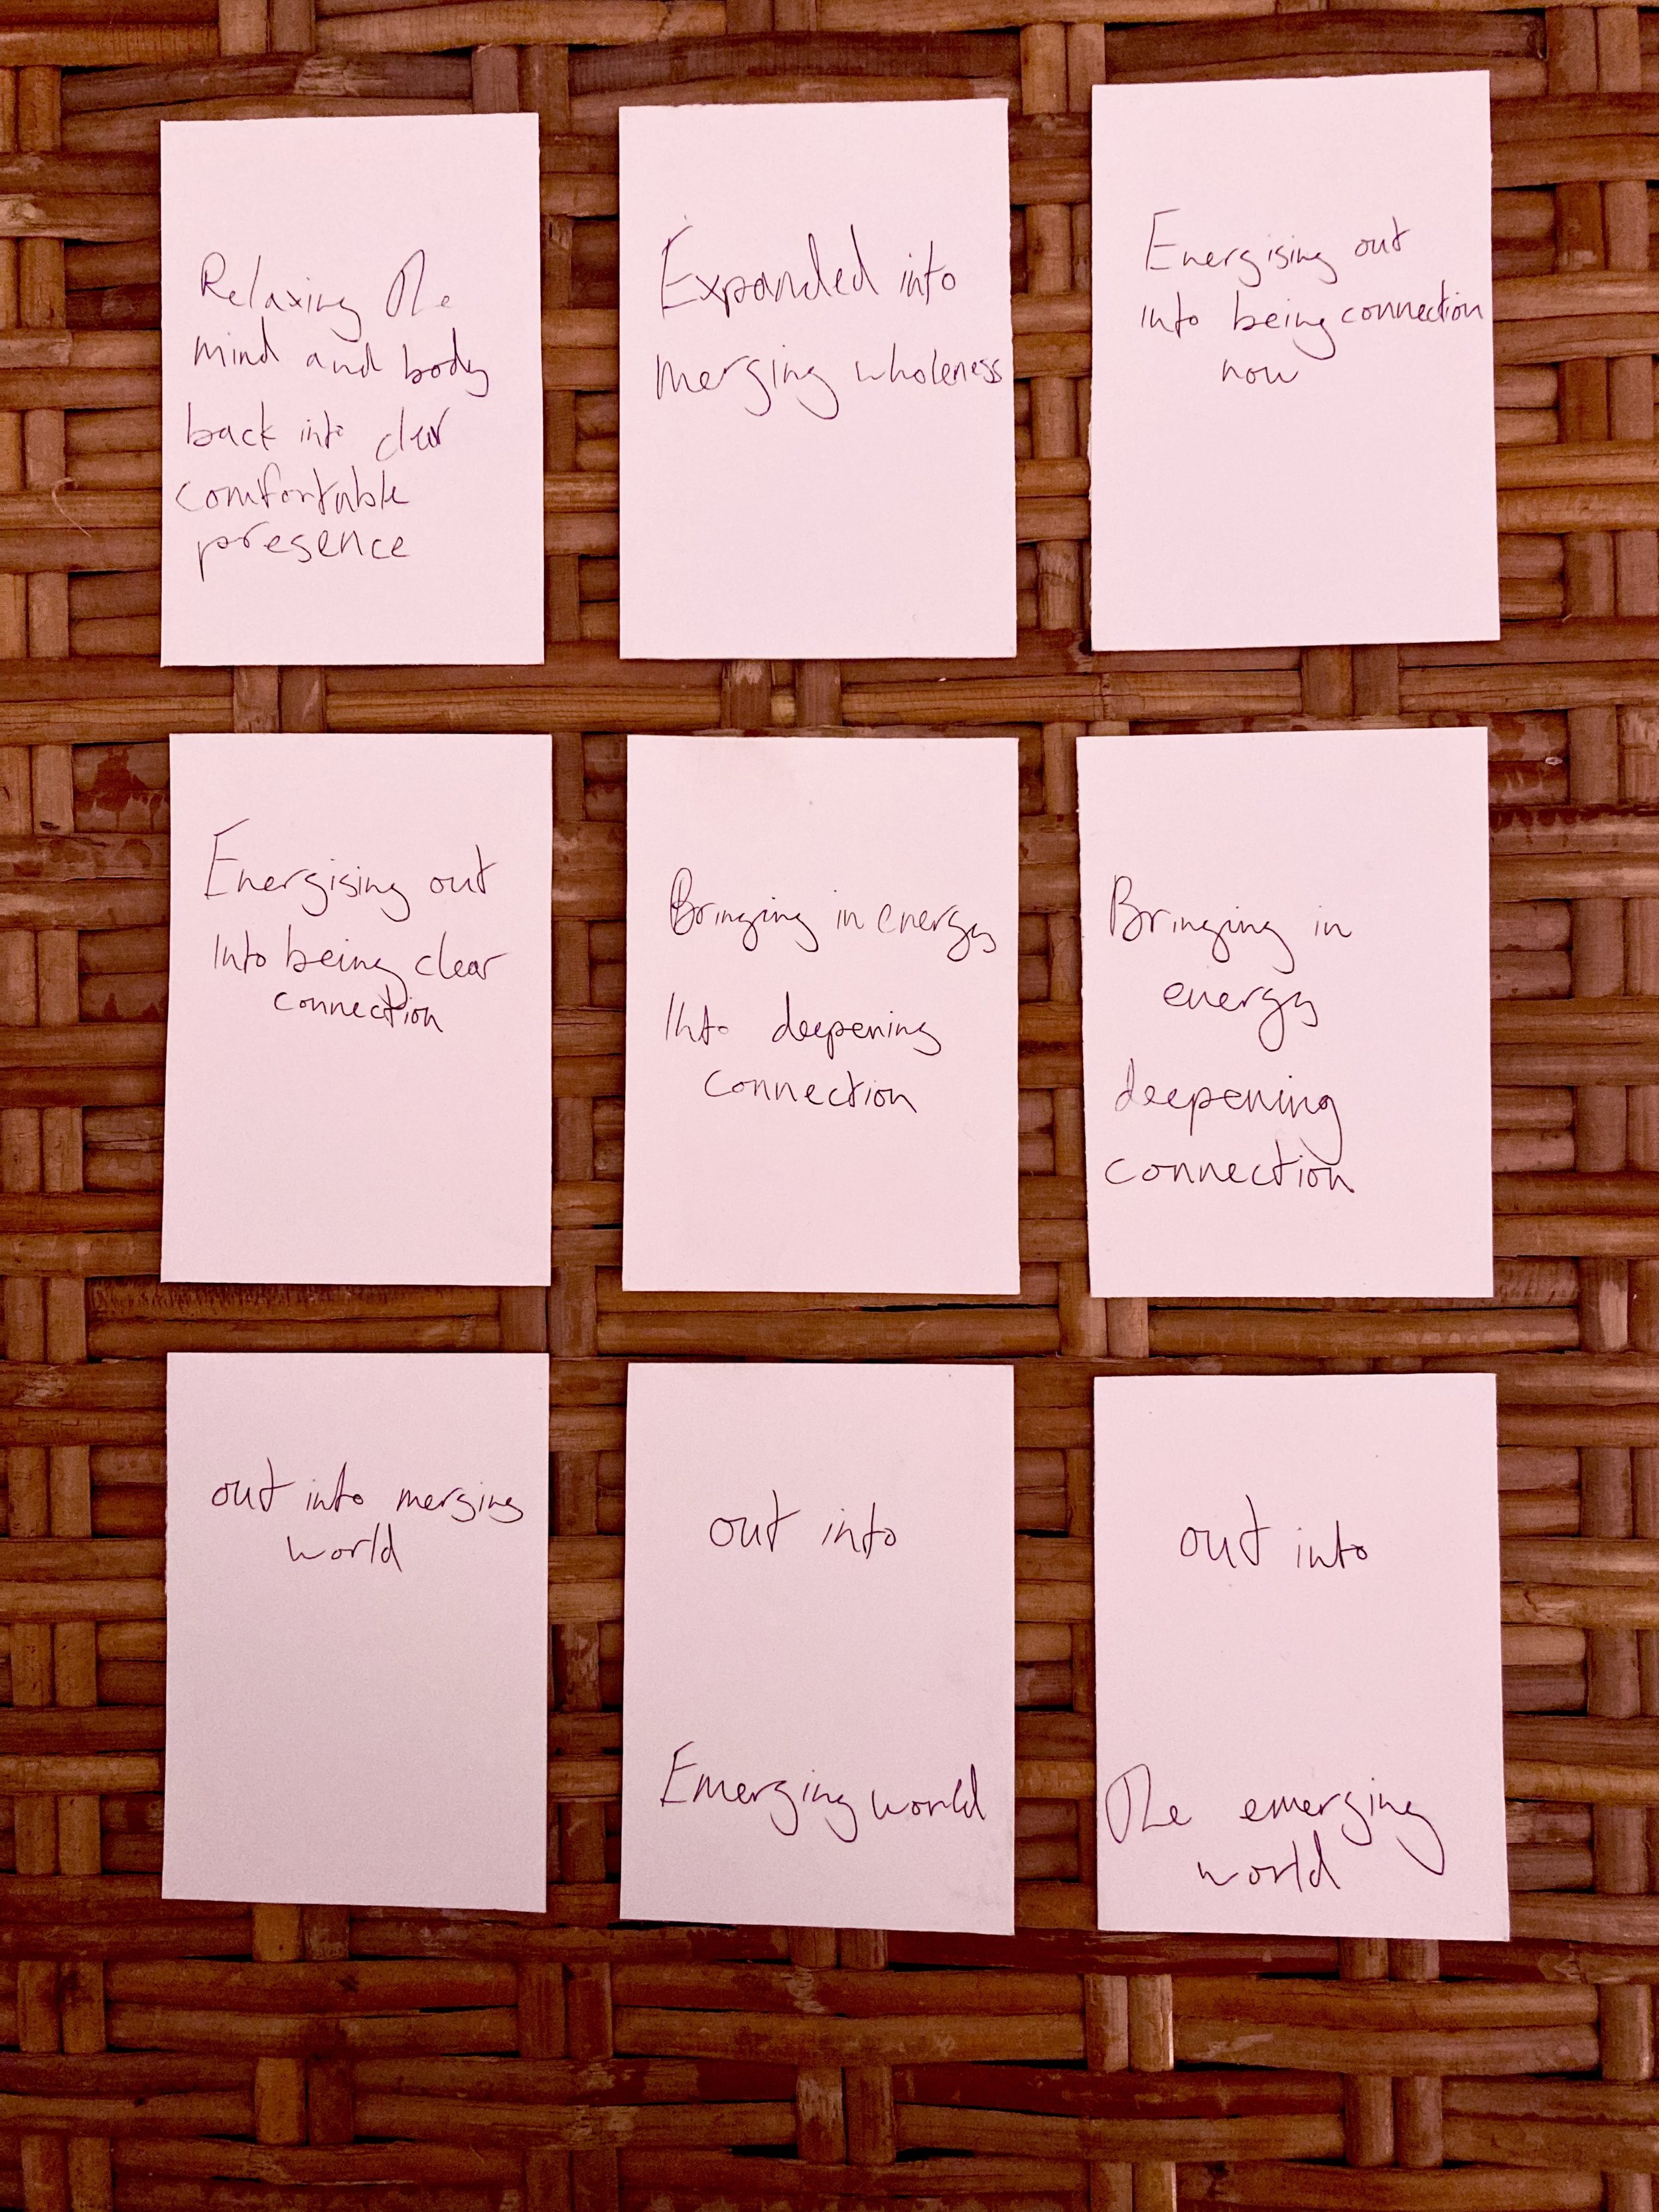 Relaxing The
mind and body
back into clear
comfortable
presence
Expanded into
merging wholeness
Energising out
into being connection
now
Energising out
Into being clear
connection
Bringing in energy
Into deepening
connection
Bringing in
energy
deepening
connection
out into merging
world
out into
Emerging world
out into
The emerging
world